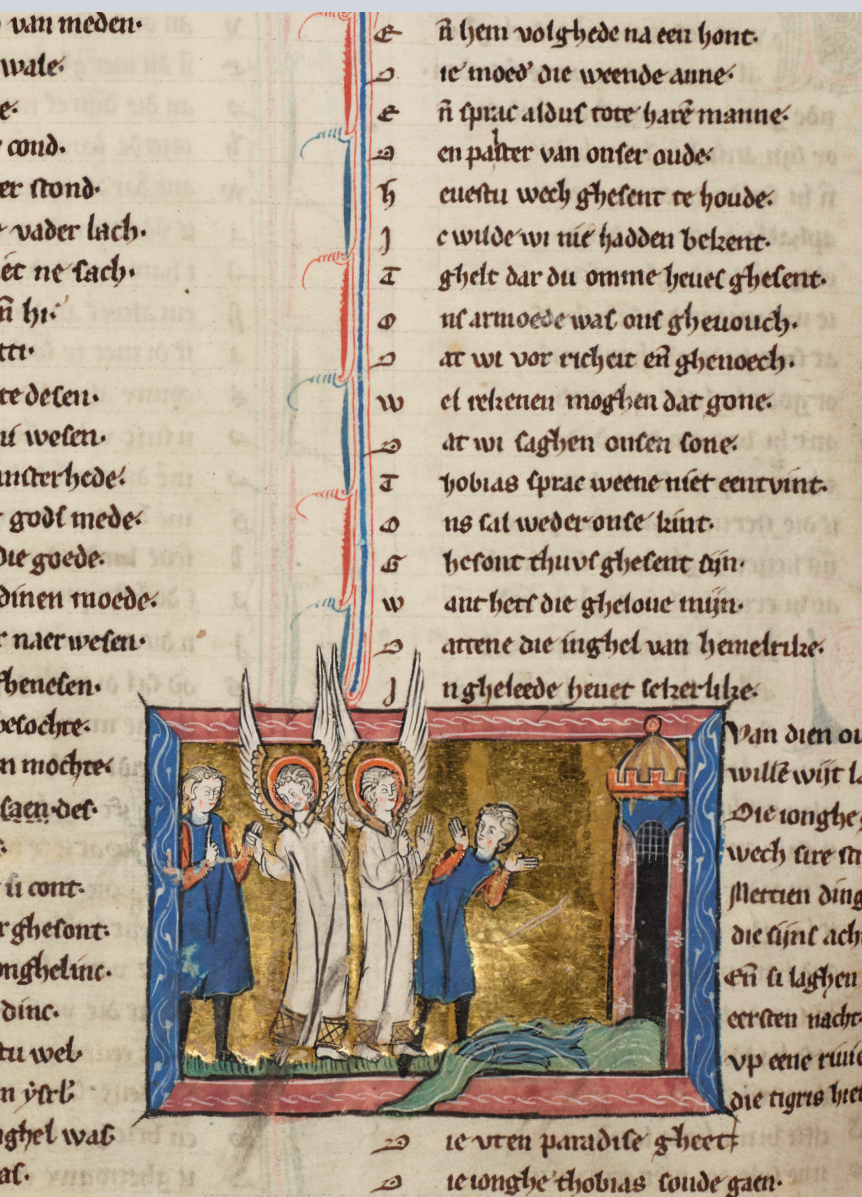 van meden·
wale·
e·
cond·
er stond·
vader lach·
et ne sach·
n̄ hi·
tti·
te desen·
ni wesen·
insterhede·
gods mede·
die goede·
dinen moede·
r naer wesen·
ghenesen·
besochte·
n mochte·
saen·des·
s·
si cont·
r ghesont·
onghelinc·
dinc·
tu wel·
m ysrl
nghel was
as·
E n̄ hem volghede na een hont·
D ie moed' die weende anne·
E n̄ sprac aldus tote harē manne·
D en paster van onser oude·
H euestu wech ghesent te houde·
I c wilde wi nie hadden bekent·
T ghelt dar du omme heues ghesent·
O ns armoede was ons gheuouch·
D at wi vor richeit en̄ ghenoech·
W el rekenen moghen dat gone·
D at wi saghen onsen sone·
T hobias sprac weene niet een twint·
O ns sal weder onse kint·
G hesont thuus ghesent sijn·
W ant hets die gheloue mijn·
D attene die inghel van hemelrike·
I n gheleede heuet sekerlike·
Van dien ou
willē wijt la
Die ionghe
wech sire st
Mettien ding
die sijns ach
En̄ si laghen
eersten nacht
vp eene riuie
die tigris hiet
D ie vten paradise gheet
D ie ionghe thobias soude gaen·